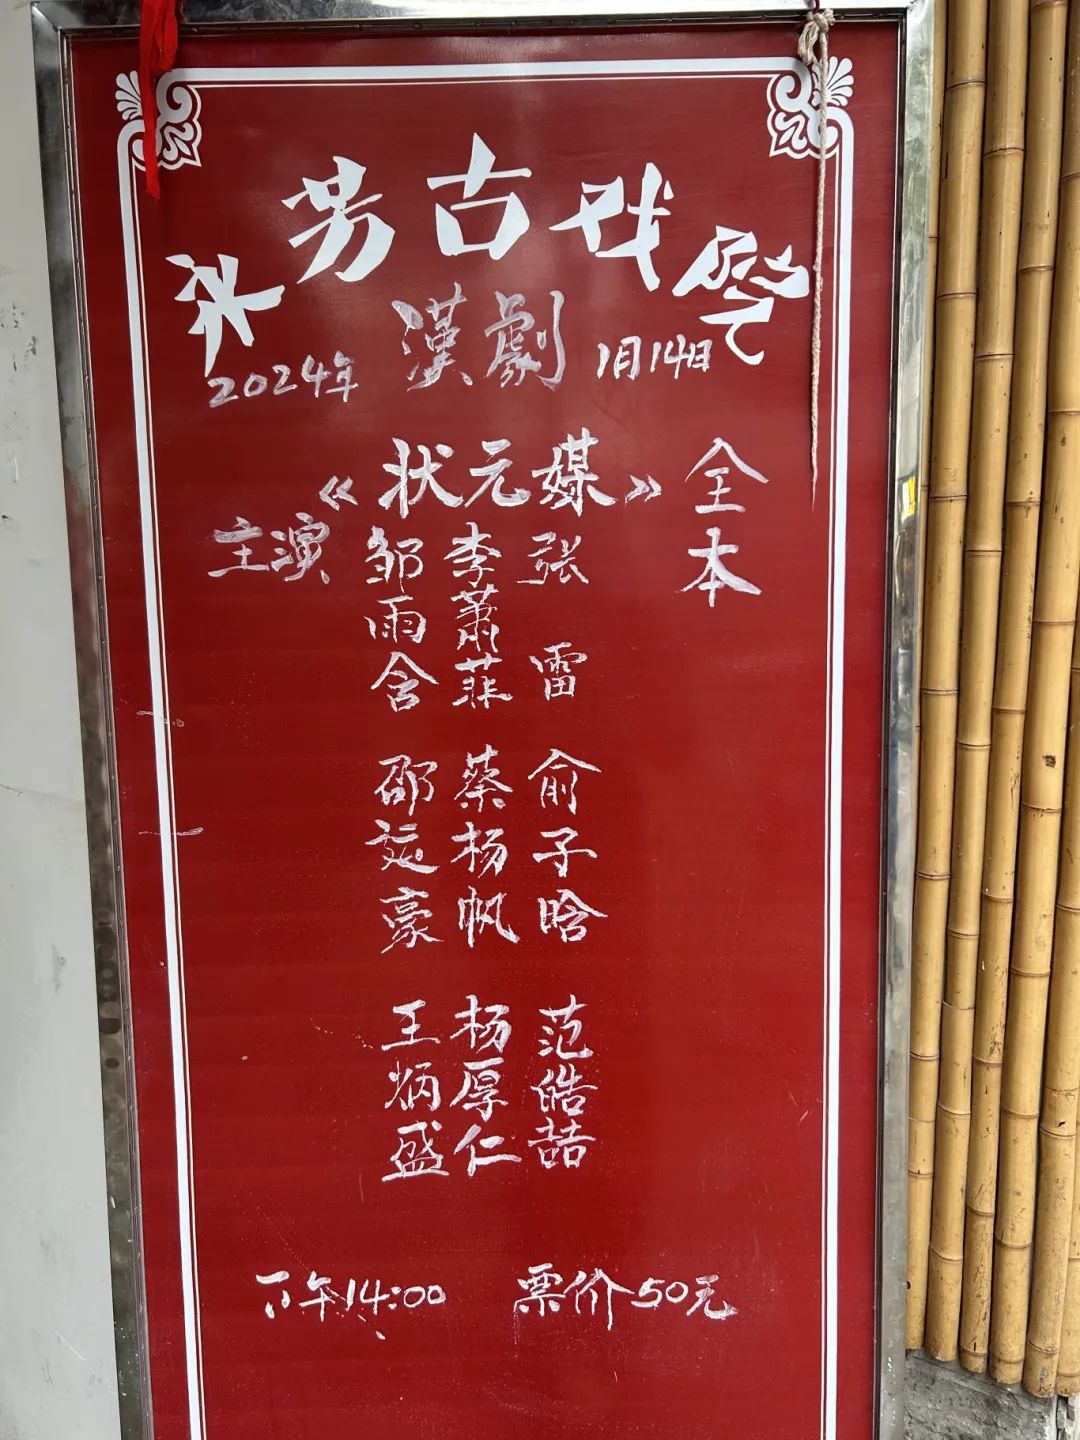 芳古戏
2024年 漢劇 1月14日
《状元媒》
全本
主演
张雷 俞子晗 范皓喆
李萧菲 蔡杨帆 杨厚仁
邹雨含 邵运豪 王炳盛
下午14:00 票价50元